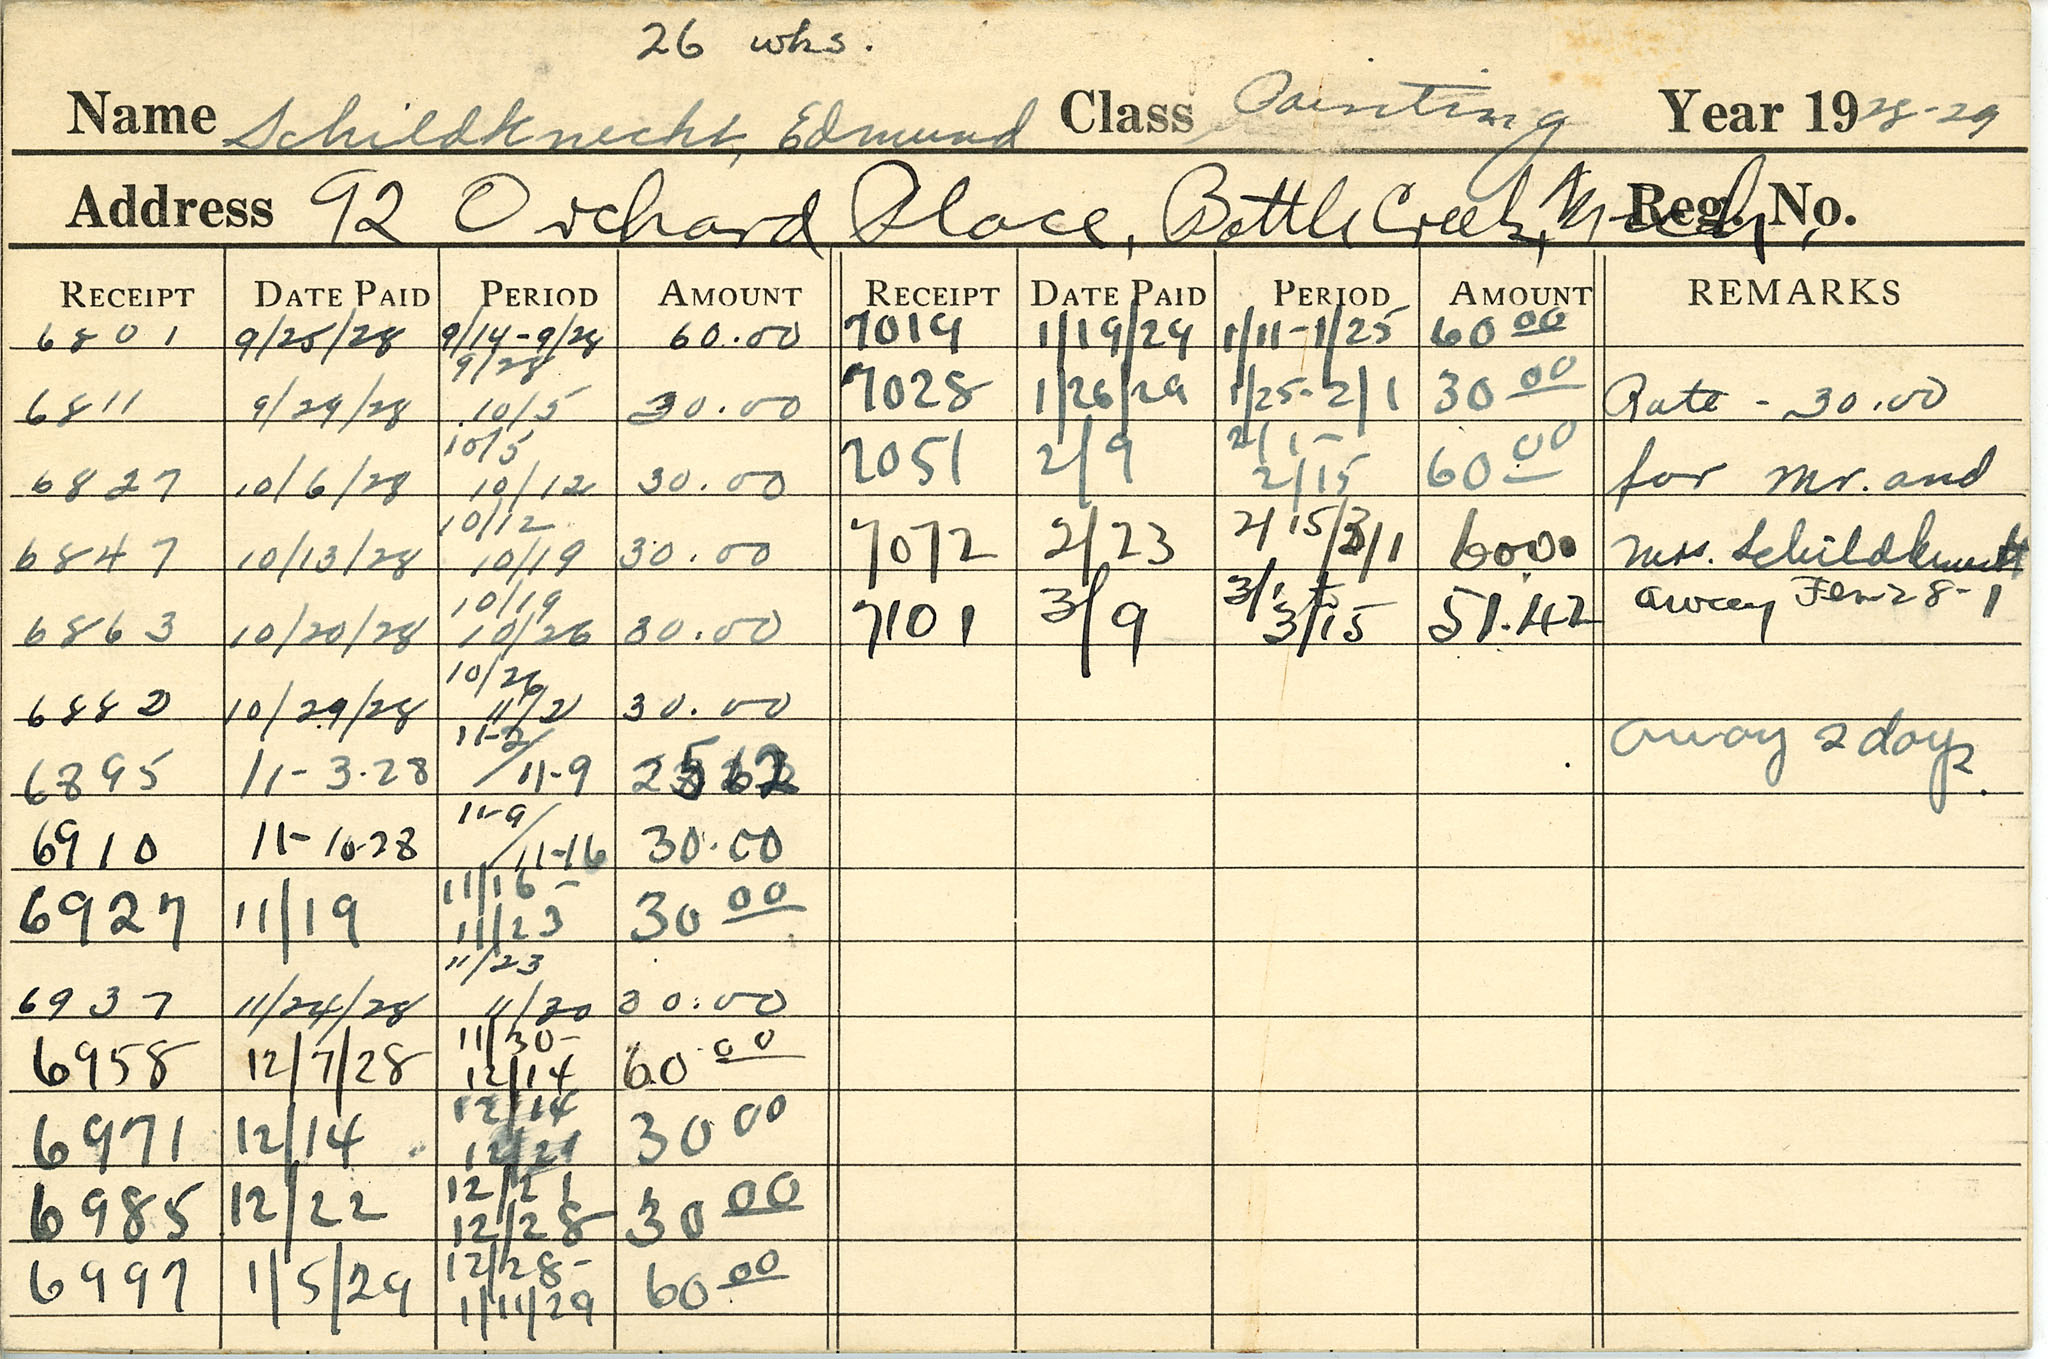 26 wks.
Name Schildknecht, Edmund Class Painting Year 1928-29
Address 92 Orchard Place, Battle Creek, Mich, Reg. No.
RECEIPT DATE PAID PERIOD AMOUNT RECEIPT DATE PAID PERIOD AMOUNT REMARKS
6801 9/25/28 9/14-9/28 60.00 7019 1/19/29 1/11-1/25 60 00
6811 9/29/28 9/28 10/5 30.00 7028 1/26/29 1/25-2/1 30 00 Rate - 30.00
6827 10/6/28 10/5 10/12 30.00 7051 2/9 2/1- 2/15 60 00 for Mr. and
6847 10/13/28 10/12 10/19 30.00 7072 2/23 2/15/3/1 6000 Mrs. Schildknecht
6863 10/20/28 10/19 10/26 30.00 7101 3/9 3/1 to 3/15 51.42 away 28-1
6882 10/29/28 10/26 11/2 30.00
6895 11-3-28 11-2/ 11-9 away 2 days.
6910 11-10-28 11-9/ 11-16 30.00
6927 11/19 11/16- 11/23 30 00
6937 11/24/28 11/23 11/30 30.00
6958 12/7/28 11/30- 12/14 60 00
6971 12/14 12/14 12/21 30 00
6985 12/22 12/21 12/28 30 00
6997 1/5/29 12/28- 1/11/29 60 00